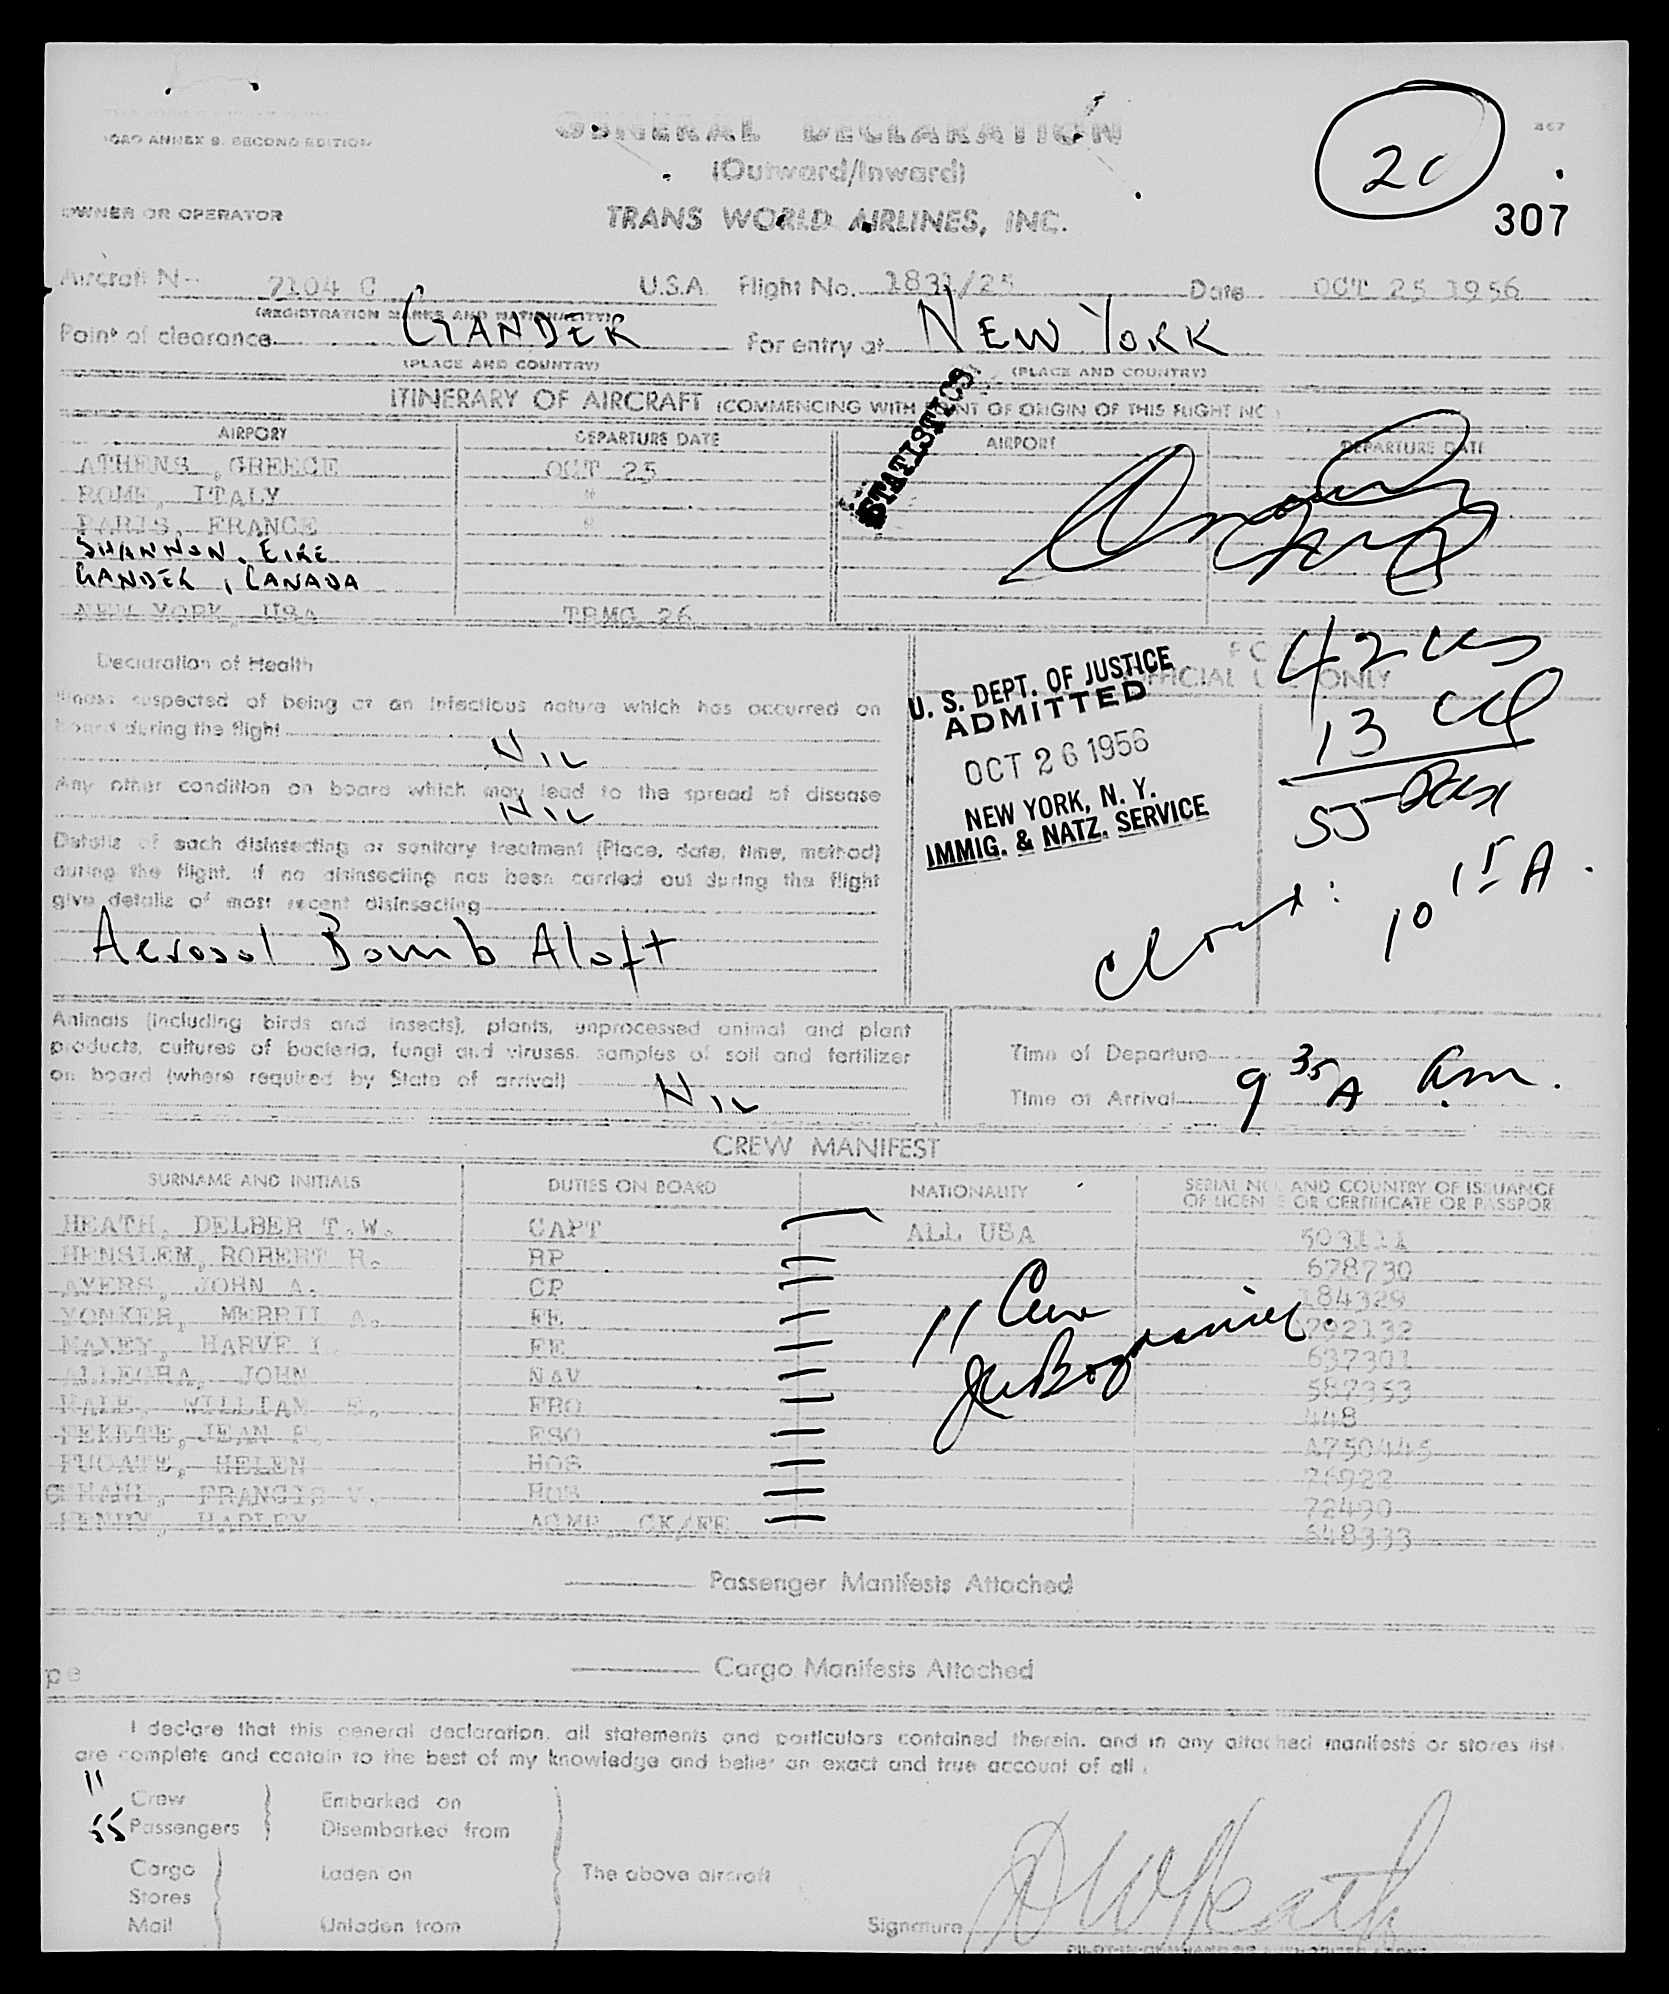 ICAO ANNEX 9. SECOND EDITION
GENERAL DECLARATION
(Outward/Inward)
467
307
OWNER OR OPERATOR
TRANS WORLD AIRLINES, INC.
Aircraft N— 7104 C U.S.A. Flight No. 1831/25 Date OCT 25 1956
(REGISTRATION MARKS AND NATIONALITY)
Point of clearance GANDER For entry at NEW YORK
(PLACE AND COUNTRY) (PLACE AND COUNTRY)
STATISTICS
ITINERARY OF AIRCRAFT (COMMENCING WITH POINT OF ORIGIN OF THIS FLIGHT NO.)
AIRPORT DEPARTURE DATE AIRPORT DEPARTURE DATE
ATHENS, GREECE OCT 25
ROME, ITALY "
PARIS, FRANCE "
SHANNON, EIRE
GANDER, CANADA
NEW YORK, USA TRMG 26
Declaration of Health
Illness suspected of being of an infectious nature which has occurred on
board during the flight
NIL
Any other condition on board which may lead to the spread of disease
NIL
Details of each disinsecting or sanitary treatment (Place, date, time, method)
during the flight. If no disinsecting has been carried out during the flight
give details of most recent disinsecting
Aerosol Bomb Aloft
FOR
OFFICIAL USE ONLY
U. S. DEPT. OF JUSTICE
ADMITTED
OCT 26 1956
NEW YORK, N. Y.
IMMIG. & NATZ. SERVICE
42
13
55
10 15 A
Animals (including birds and insects), plants, unprocessed animal and plant
products, cultures of bacteria, fungi and viruses, samples of soil and fertilizer
on board (where required by State of arrival)
NIL
Time of Departure
Time of Arrival 9 35 A am.
CREW MANIFEST
SURNAME AND INITIALS DUTIES ON BOARD NATIONALITY SERIAL NO. AND COUNTRY OF ISSUANCE
OF LICENSE OR CERTIFICATE OR PASSPORT
HEATH, DELBER T.W. CAPT ALL USA 503111
HENSLEM, ROBERT R. RP 678730
AYERS, JOHN A. CP 184329
YONKER, MERRIL A. FE 792132
MAXEY, HARVE L. FE 637301
ALLEGRA, JOHN NAV 587353
HALE, WILLIAM E. FRO 448
FEKETE, JEAN P. FSO A750445
PUGATE, HELEN HOS 76922
FRANCIS V. HOS 72490
HARLEY ACMF, CK/FE 648333
11 Crew
Passenger Manifests Attached
Cargo Manifests Attached
pe
I declare that this general declaration, all statements and particulars contained therein, and in any attached manifests or stores list
are complete and contain to the best of my knowledge and belief an exact and true account of all
11 Crew Embarked on
55 Passengers Disembarked from
Cargo Laden on The above aircraft
Stores
Mail Unladen from
Signature D W Heath